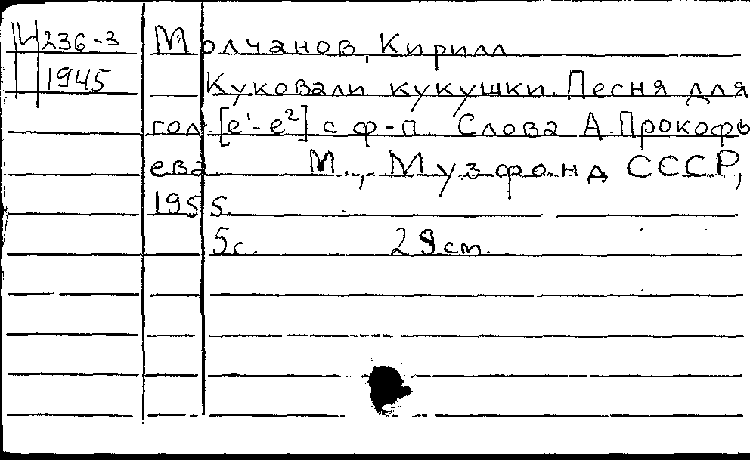 М 236-3 Молчанов, Кирилл
1945 Куковали кукушки. Песня для
гол. [e¹-e²] с ф-п. Слова А. Прокофь
ева. М., Музфонд СССР,
1955.
5с. 29 см.